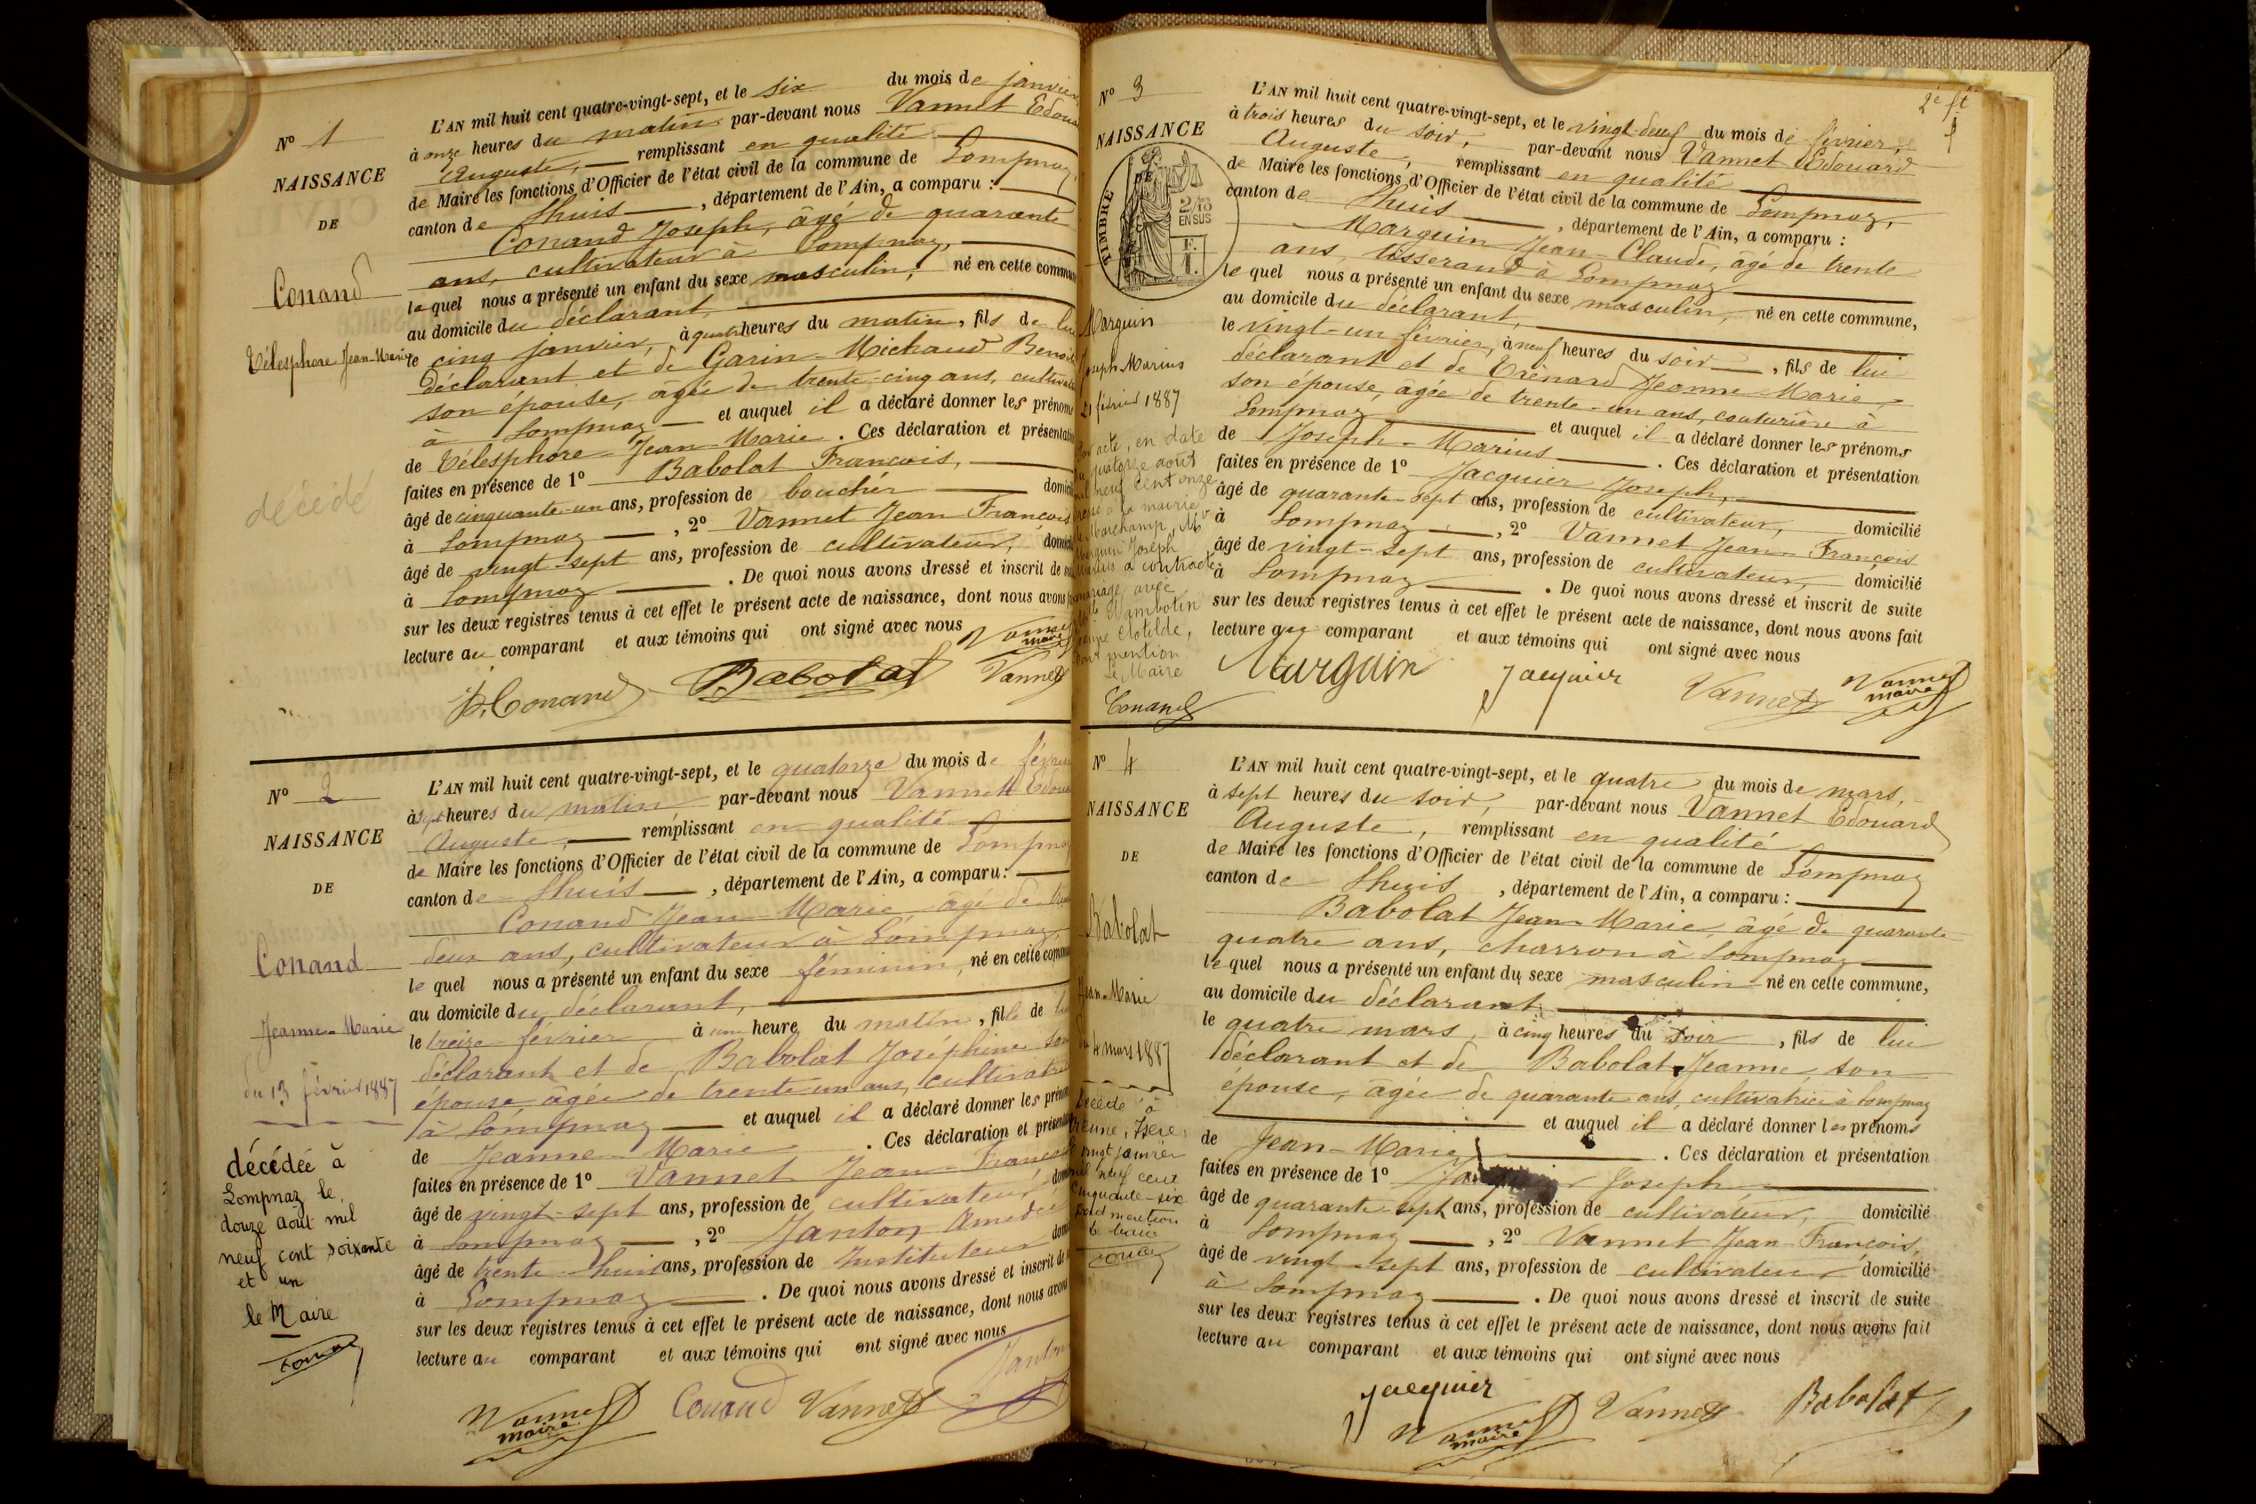 Nº 1
NAISSANCE
DE
Conand
Télesphore Jean-Marie
décédé
L'AN mil huit cent quatre-vingt-sept, et le six du mois de janvier,
à onze heures du matin par-devant nous Vannet Edoua
Auguste, remplissant en qualité
de Maire les fonctions d'Officier de l'état civil de la commune de Lompnaz,
canton de Lhuis, département de l'Ain, a comparu :
Conand Joseph, âgé de quarante
ans, cultivateur à Lompnaz,
lequel nous a présenté un enfant du sexe masculin, né en cette commune
au domicile du déclarant,
le cinq janvier, à quatre heures du matin, fils de lui
déclarant et de Garin-Michaud Benoîte
son épouse, âgée de trente-cinq ans, cultivat
à Lompnaz et auquel il a déclaré donner les prénoms
de Télesphore Jean-Marie. Ces déclaration et présentation
faites en présence de 1º Babolat François,
âgé de cinquante-un ans, profession de boucher domicil
à Lompnaz, 2º Vannet Jean François
âgé de vingt-sept ans, profession de cultivateur, domicil
à Lompnaz. De quoi nous avons dressé et inscrit de
sur les deux registres tenus à cet effet le présent acte de naissance, dont nous avons
lecture au comparant et aux témoins qui ont signé avec nous
J. Conand Babolat Vannet Vannet maire
Nº 2
NAISSANCE
DE
Conand
Jeanne-Marie
du 13 février 1887
décédée à
Lompnaz le
douze août mil
neuf cent soixante
et un
le Maire
L'AN mil huit cent quatre-vingt-sept, et le quatorze du mois de février
à sept heures du matin par-devant nous Vannet Edoua
Auguste, remplissant en qualité
de Maire les fonctions d'Officier de l'état civil de la commune de Lompnaz
canton de Lhuis, département de l'Ain, a comparu :
Conand Jean-Marie âgé de
deux ans, cultivateur à Lompnaz,
lequel nous a présenté un enfant du sexe féminin, né en cette commune
au domicile du déclarant,
le treize février à une heure du matin, fille de lui
déclarant et de Babolat Joséphine son
épouse âgée de trente-un ans, cultivatrice
à Lompnaz et auquel il a déclaré donner les prénoms
de Jeanne-Marie. Ces déclaration et présent
faites en présence de 1º Vannet Jean-François
âgé de vingt-sept ans, profession de cultivateur, dom
à Lompnaz, 2º Janton Amédée
âgé de trente-huit ans, profession de Instituteur dom
à Lompnaz. De quoi nous avons dressé et inscrit de
sur les deux registres tenus à cet effet le présent acte de naissance, dont nous avons
lecture au comparant et aux témoins qui ont signé avec nous
Vannet maire Conand Vannet Janton
2e ft
Nº 3
NAISSANCE
TIMBRE
2/10 EN SUS
F. 1.
Marguin
Joseph Marius
21 février 1887
acte, en date
quatorze août
mil neuf cent onze
à la mairie
Marchamp,
Marguin Joseph
Marius a contracté
mariage avec
Clotilde,
mention
Le Maire
Conand
L'AN mil huit cent quatre-vingt-sept, et le vingt-deux du mois de février,
à trois heures du soir, par-devant nous Vannet Edouard
Auguste, remplissant en qualité
de Maire les fonctions d'Officier de l'état civil de la commune de Lompnaz,
canton de Lhuis, département de l'Ain, a comparu :
Marguin Jean-Claude, âgé de trente
ans, tisserand à Lompnaz
lequel nous a présenté un enfant du sexe masculin, né en cette commune,
au domicile du déclarant,
le vingt-un février, à neuf heures du soir, fils de lui
déclarant et de Trénard Jeanne-Marie,
son épouse, âgée de trente-un ans, couturière à
Lompnaz et auquel il a déclaré donner les prénoms
de Joseph-Marius. Ces déclaration et présentation
faites en présence de 1º Jacquier Joseph,
âgé de quarante-sept ans, profession de cultivateur, domicilié
à Lompnaz, 2º Vannet Jean-François
âgé de vingt-sept ans, profession de cultivateur, domicilié
à Lompnaz. De quoi nous avons dressé et inscrit de suite
sur les deux registres tenus à cet effet le présent acte de naissance, dont nous avons fait
lecture au comparant et aux témoins qui ont signé avec nous
Marguin Jacquier Vannet Vannet maire
Nº 4
NAISSANCE
DE
Babolat
Jean-Marie
du 4 mars 1887
décédé à
Vienne, Isère
vingt janvier
mil neuf cent
cinquante-six
mention
L'AN mil huit cent quatre-vingt-sept, et le quatre du mois de mars,
à sept heures du soir, par-devant nous Vannet Edouard
Auguste, remplissant en qualité
de Maire les fonctions d'Officier de l'état civil de la commune de Lompnaz
canton de Lhuis, département de l'Ain, a comparu :
Babolat Jean-Marie, âgé de quarante-
quatre ans, charron à Lompnaz
lequel nous a présenté un enfant du sexe masculin né en cette commune,
au domicile du déclarant,
le quatre mars, à cinq heures du soir, fils de lui
déclarant et de Babolat Jeanne, son
épouse, âgée de quarante ans, cultivatrice à Lompnaz
et auquel il a déclaré donner les prénoms
de Jean-Marie. Ces déclaration et présentation
faites en présence de 1º Joseph
âgé de quarante-sept ans, profession de cultivateur, domicilié
à Lompnaz, 2º Vannet Jean-François,
âgé de vingt-sept ans, profession de cultivateur domicilié
à Lompnaz. De quoi nous avons dressé et inscrit de suite
sur les deux registres tenus à cet effet le présent acte de naissance, dont nous avons fait
lecture au comparant et aux témoins qui ont signé avec nous
Jacquier Vannet maire Vannet Babolat